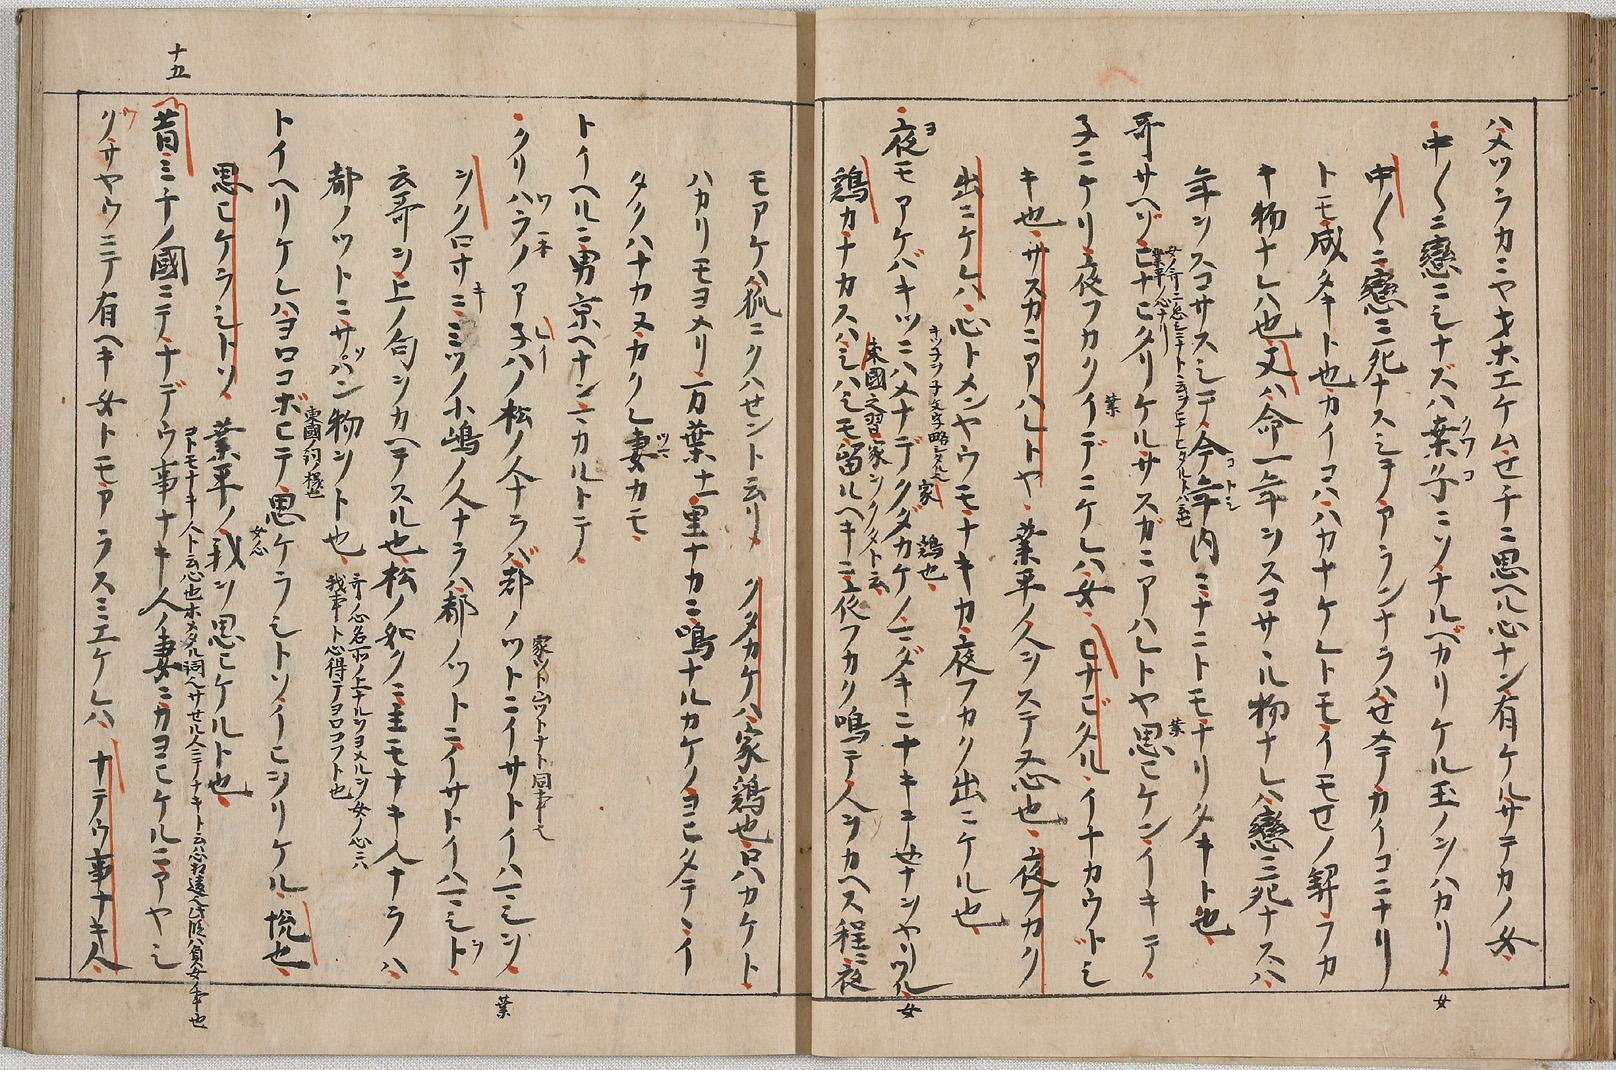 ハメツラカニヤオホエケムせチニ思ヘル心ナン有ケルサテカノ女
中〱ニ戀ニシナズハ桒子ニソナルベカリケル玉ノヲハカリ
クワコ
女
中〱ニ戀ニ死ナスシテアランナラハせメテカイコニナリ
トモ成タキト也カイコハハカナケレトモイモせノ契フカ
キ物ナレハ也又ハ命一年ヲスコサヌ物ナレハ戀ニ死ナスハ
年ヲスコサスシテ今年内ミナニトモナリタキト也
コトシ
哥サヘゾヒナヒタリケルサスガニアハレトヤ思ヒケンイキテ
業
子ニケリ夜フカクイデニケレハ女ヒナビタルイナカウドシ
業
キ也サスカニアハレトヤ業平ノ人ヲステヌ心也夜フカク
出ニケレハ心トメンヤウモナキカ夜フカク出ニケル也
夜モアケバキツニハメナデクダカケノマダキニナキテせナヲヤリツル
ヨ
キツ子ツ子文字略シタル也
家
鶏也
女
東國之習家ヲクタト云
鶏カナカスハシハシモ留ルヘキニ夜フカク鳴テ人ヲカヘス程ニ夜
モアケハ狐ニクハせント云リ クタカケハ家鶏也只ハカケト
ハカリモヨメリ万葉十一里ナカニ鳴ナルカケノヨヒタテヽイ
タクハナカヌカクレ妻カモ
ツマ
トイヘルニ男京ヘナンマカルトテ
クリハラノア子ハノ松ノ人ナラバ都ノツトニイサトイハマシヲ
ツ一本
レイ
家ツト山ツトナト同事也
業
ヲクロサキミツノ小嶋ノ人ナラハ都ノツトニイサトイハマシト
云哥ヲ上ノ句ヲカヘテスル也松ノ如クニ主モナキ人ナラハ
都ノツトニサソハン物ヲト也
哥ノ心名所ノ上ナルヲヨメルヲ女ノ心ニハ
我事ト心得テヨロコフト也
トイヘリケレハヨロコボヒテ思ケラシトソイヒヲリケル悦也
東國ノ詞ノ様也
女心
思ヒケラシトソ業平ノ我ヲ思ヒケルト也
十五
昔ミチノ國ニテナデウ事ナキ人ノ妻ニカヨヒケルニアヤシ
クサヤウニテ有ヘキ女トモアラスミエケレハ ナテウ事ナキ人
ウ